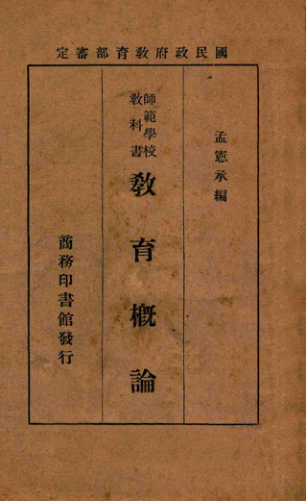 國民政府教育部審定
孟憲承編
師範學校
教科書
教育概論
商務印書館發行